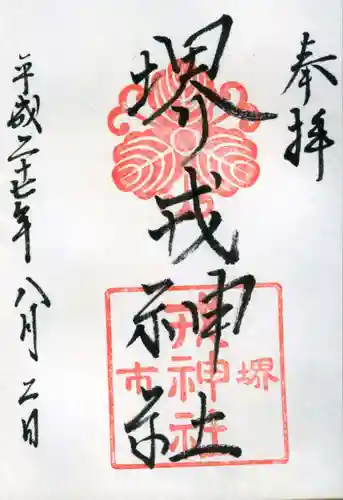 奉拝
堺戎神社
堺市
戎神社
平成二十七年八月二日